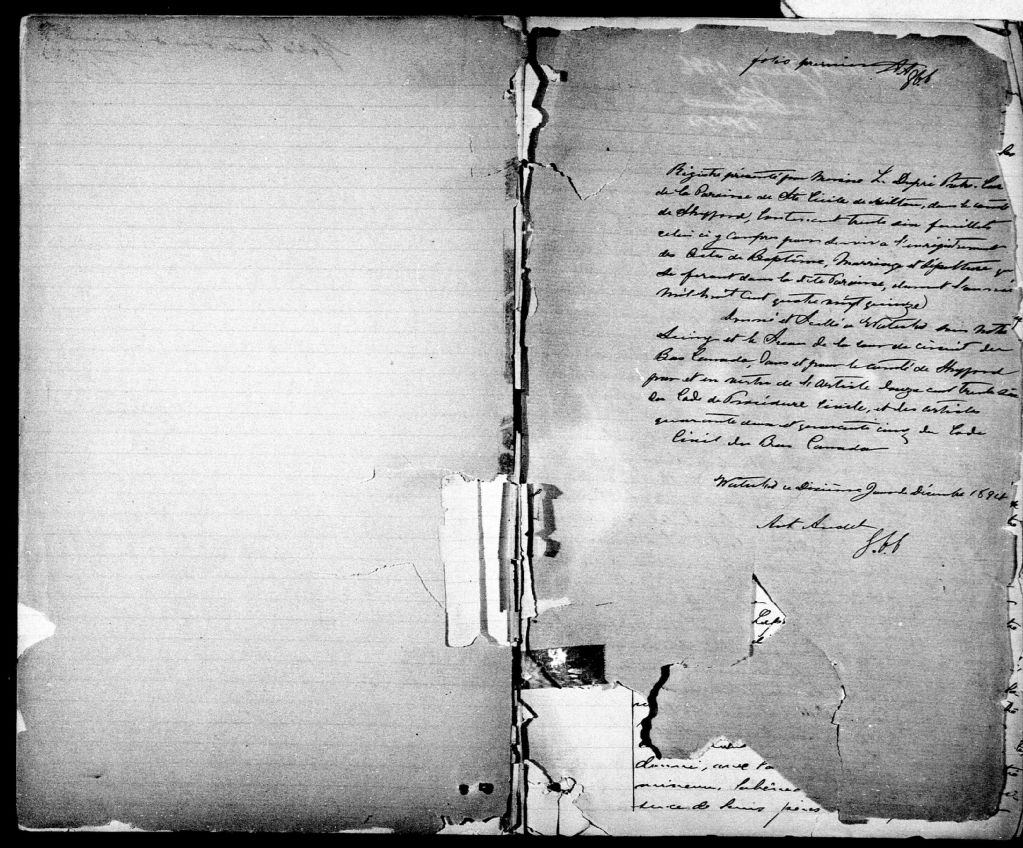 folio premier
Registre présenté par Messire L. Dupré Ptre. Curé
de la Paroisse de Ste Cécile de Milton, dans le comté
de Shefford, Contenant trente six feuillets
celui ci y compris pour servir a l'enrégistrement
des Actes de Baptême, Marriage et Sépulture qui
se feront dans la dite Paroisse, durant l'année
mil huit cent quatre vingt quinze
Donné et Scellé a Waterloo sous notre
Seing et le Sceau de la cour de circuit du
Bas Canada, dans et pour le comté de Shefford
par et en vertu de l'article douze cent trente six
du Code de Procédure Civile, et des articles
quarante deux et quarante cinq du Code
Civil du Bas Canada
Waterloo ce Dixième Jour de Décembre 1894
Ant Audet
G.b.b
donné, avec
mineure,
sence de leurs pères